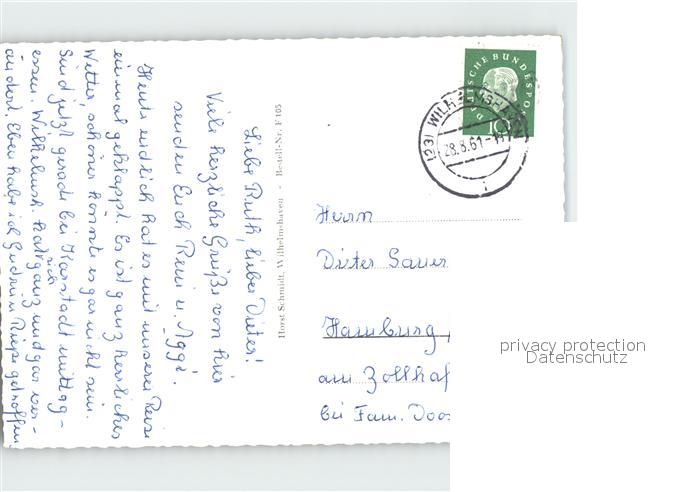 Liebe Ruth, lieber Dieter!
Viele herzliche Grüße von hier
senden Euch Reni u. Aggi.
Heute endlich hat es mit unserer Reise
einmal geklappt. Es ist ganz herrliches
Wetter, schöner könnte es gar nicht sein.
Sind jetzt gerade bei Karstadt mittag-
essen. Wilhelmsh. hat sich ganz und gar ver-
ändert. Eben habe ich Gudrun getroffen
Horst Schmidt, Wilhelmshaven - Bestell-Nr. F 105
DEUTSCHE BUNDESPOST
10
(23) WILHELMSHAVEN
28.8.61-17
i
Herrn
Dieter Sauer
Hamburg
am Zollhaf
bei Fam. Doos
privacy protection
Datenschutz